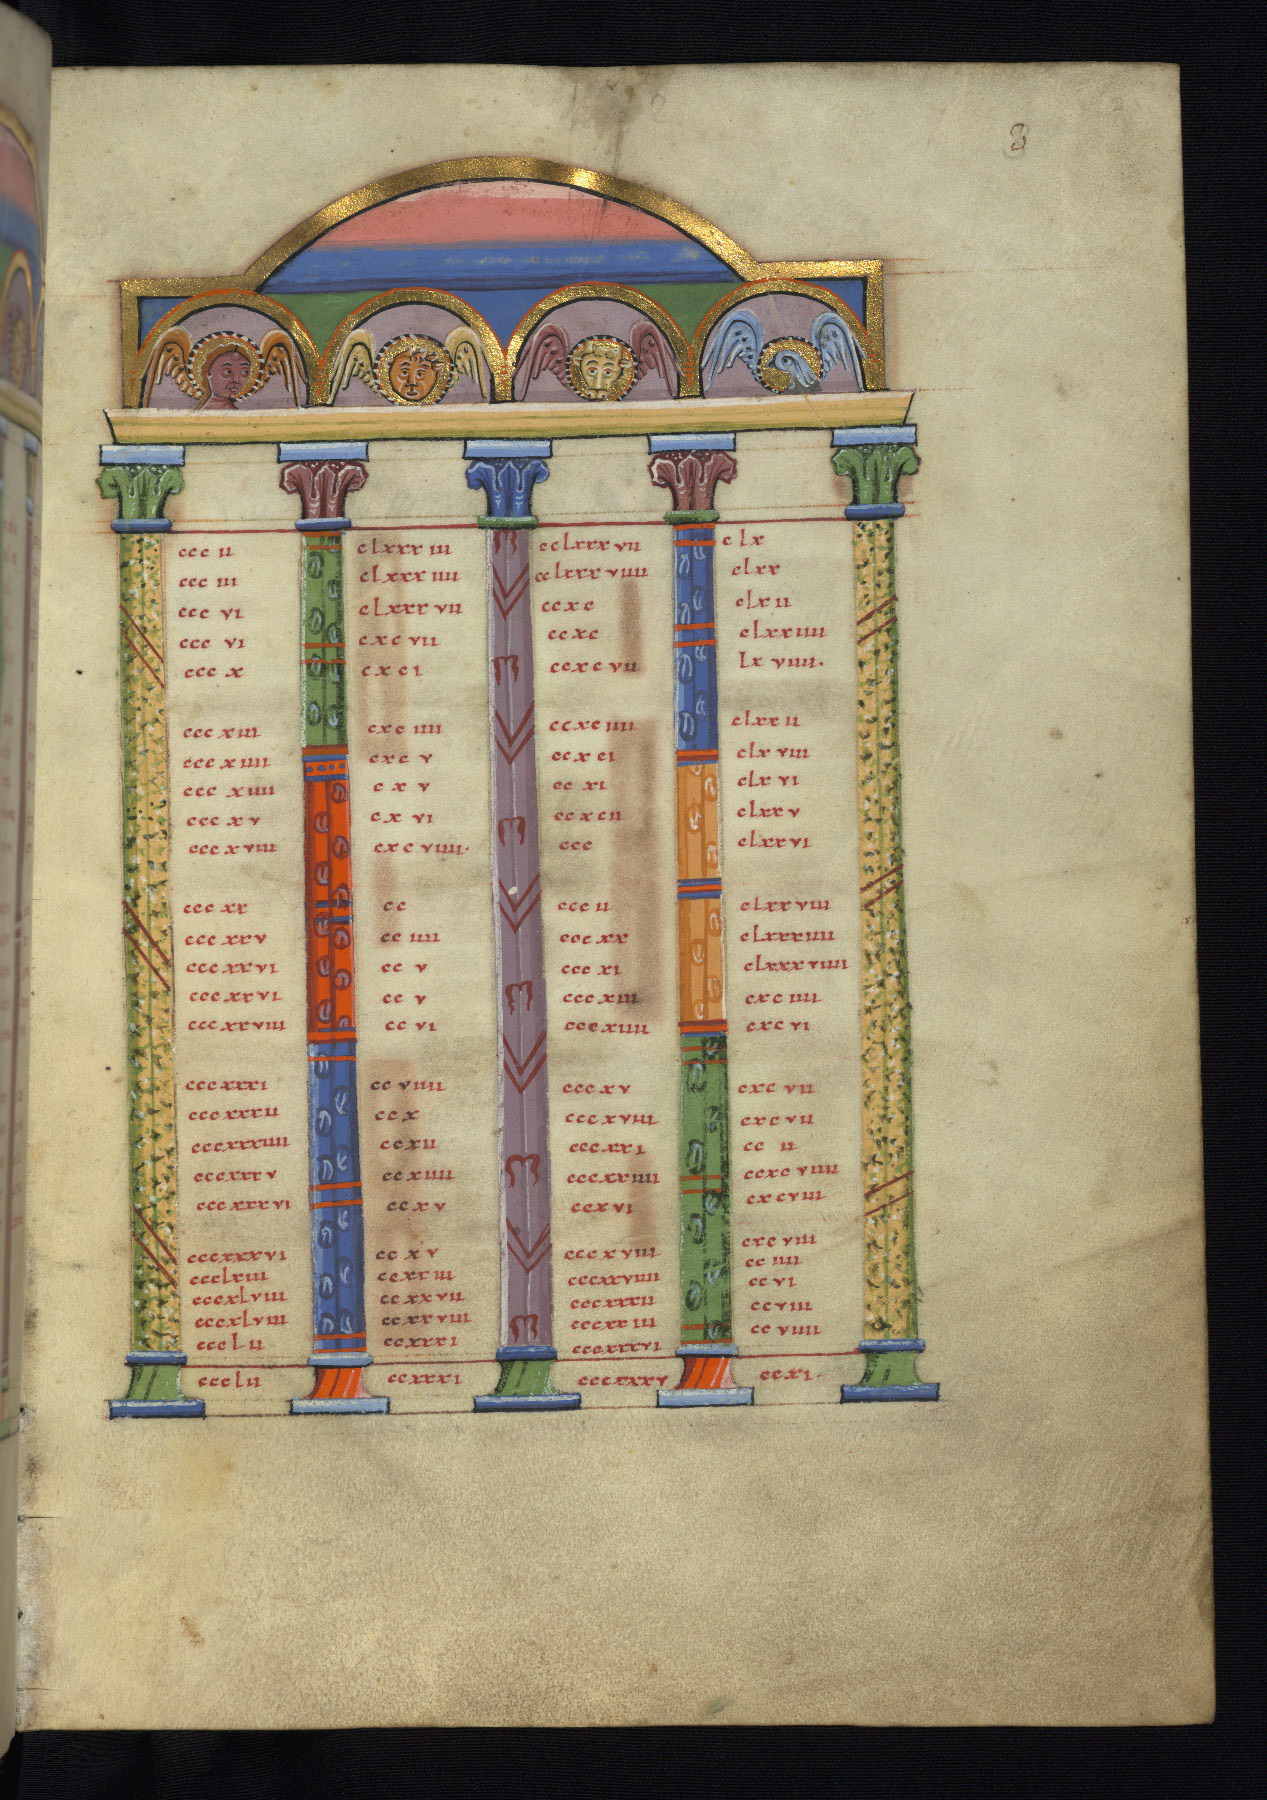 8
ccc ii clxxx iii cclxxx vii clx
ccc iii clxxx iiii cclxxx viiii clxx
ccc vi clxxx vii ccxc clx ii
ccc vi cxc vii ccxc clxx iiii
ccc x cxc i ccxc vii lx viiii.
ccc xiii cxc iiii ccxc iiii clxx ii
ccc xiiii cxc v ccxc i clx viii
ccc xiiii c x v cc xi clx vi
ccc xv cx vi ccxc ii clxx v
ccc xviii cxc viiii. ccc clxx vi
ccc xx cc ccc ii clxx viii
ccc xxv cc iiii ccc xx clxxx iiii
ccc xxvi cc v ccc xi clxxx viiii
ccc xxvi cc v ccc xiii cxc iiii
ccc xxviii cc vi ccc xiiii cxc vi
ccc xxxi cc viiii ccc xv cxc vii
ccc xxxii cc x ccc xviii cxc vii
ccc xxxiiii cc xii ccc xxi cc ii
ccc xxx v cc xiiii ccc xx iiii ccxc viiii
ccc xxx vi cc x v ccx vi cxc viii
ccc xxx vi cc x v ccc x viii cxc viii
ccclxiii ccxx iii ccc xxviiii cc iiii
cccxlviii ccxx vii ccc xxxii cc vi
cccxlviii ccxx viii cccxx iii cc viii
ccc l ii ccxxx i cccxxx vi cc viiii
ccc l ii ccxxx i cccxxx v cc xi.